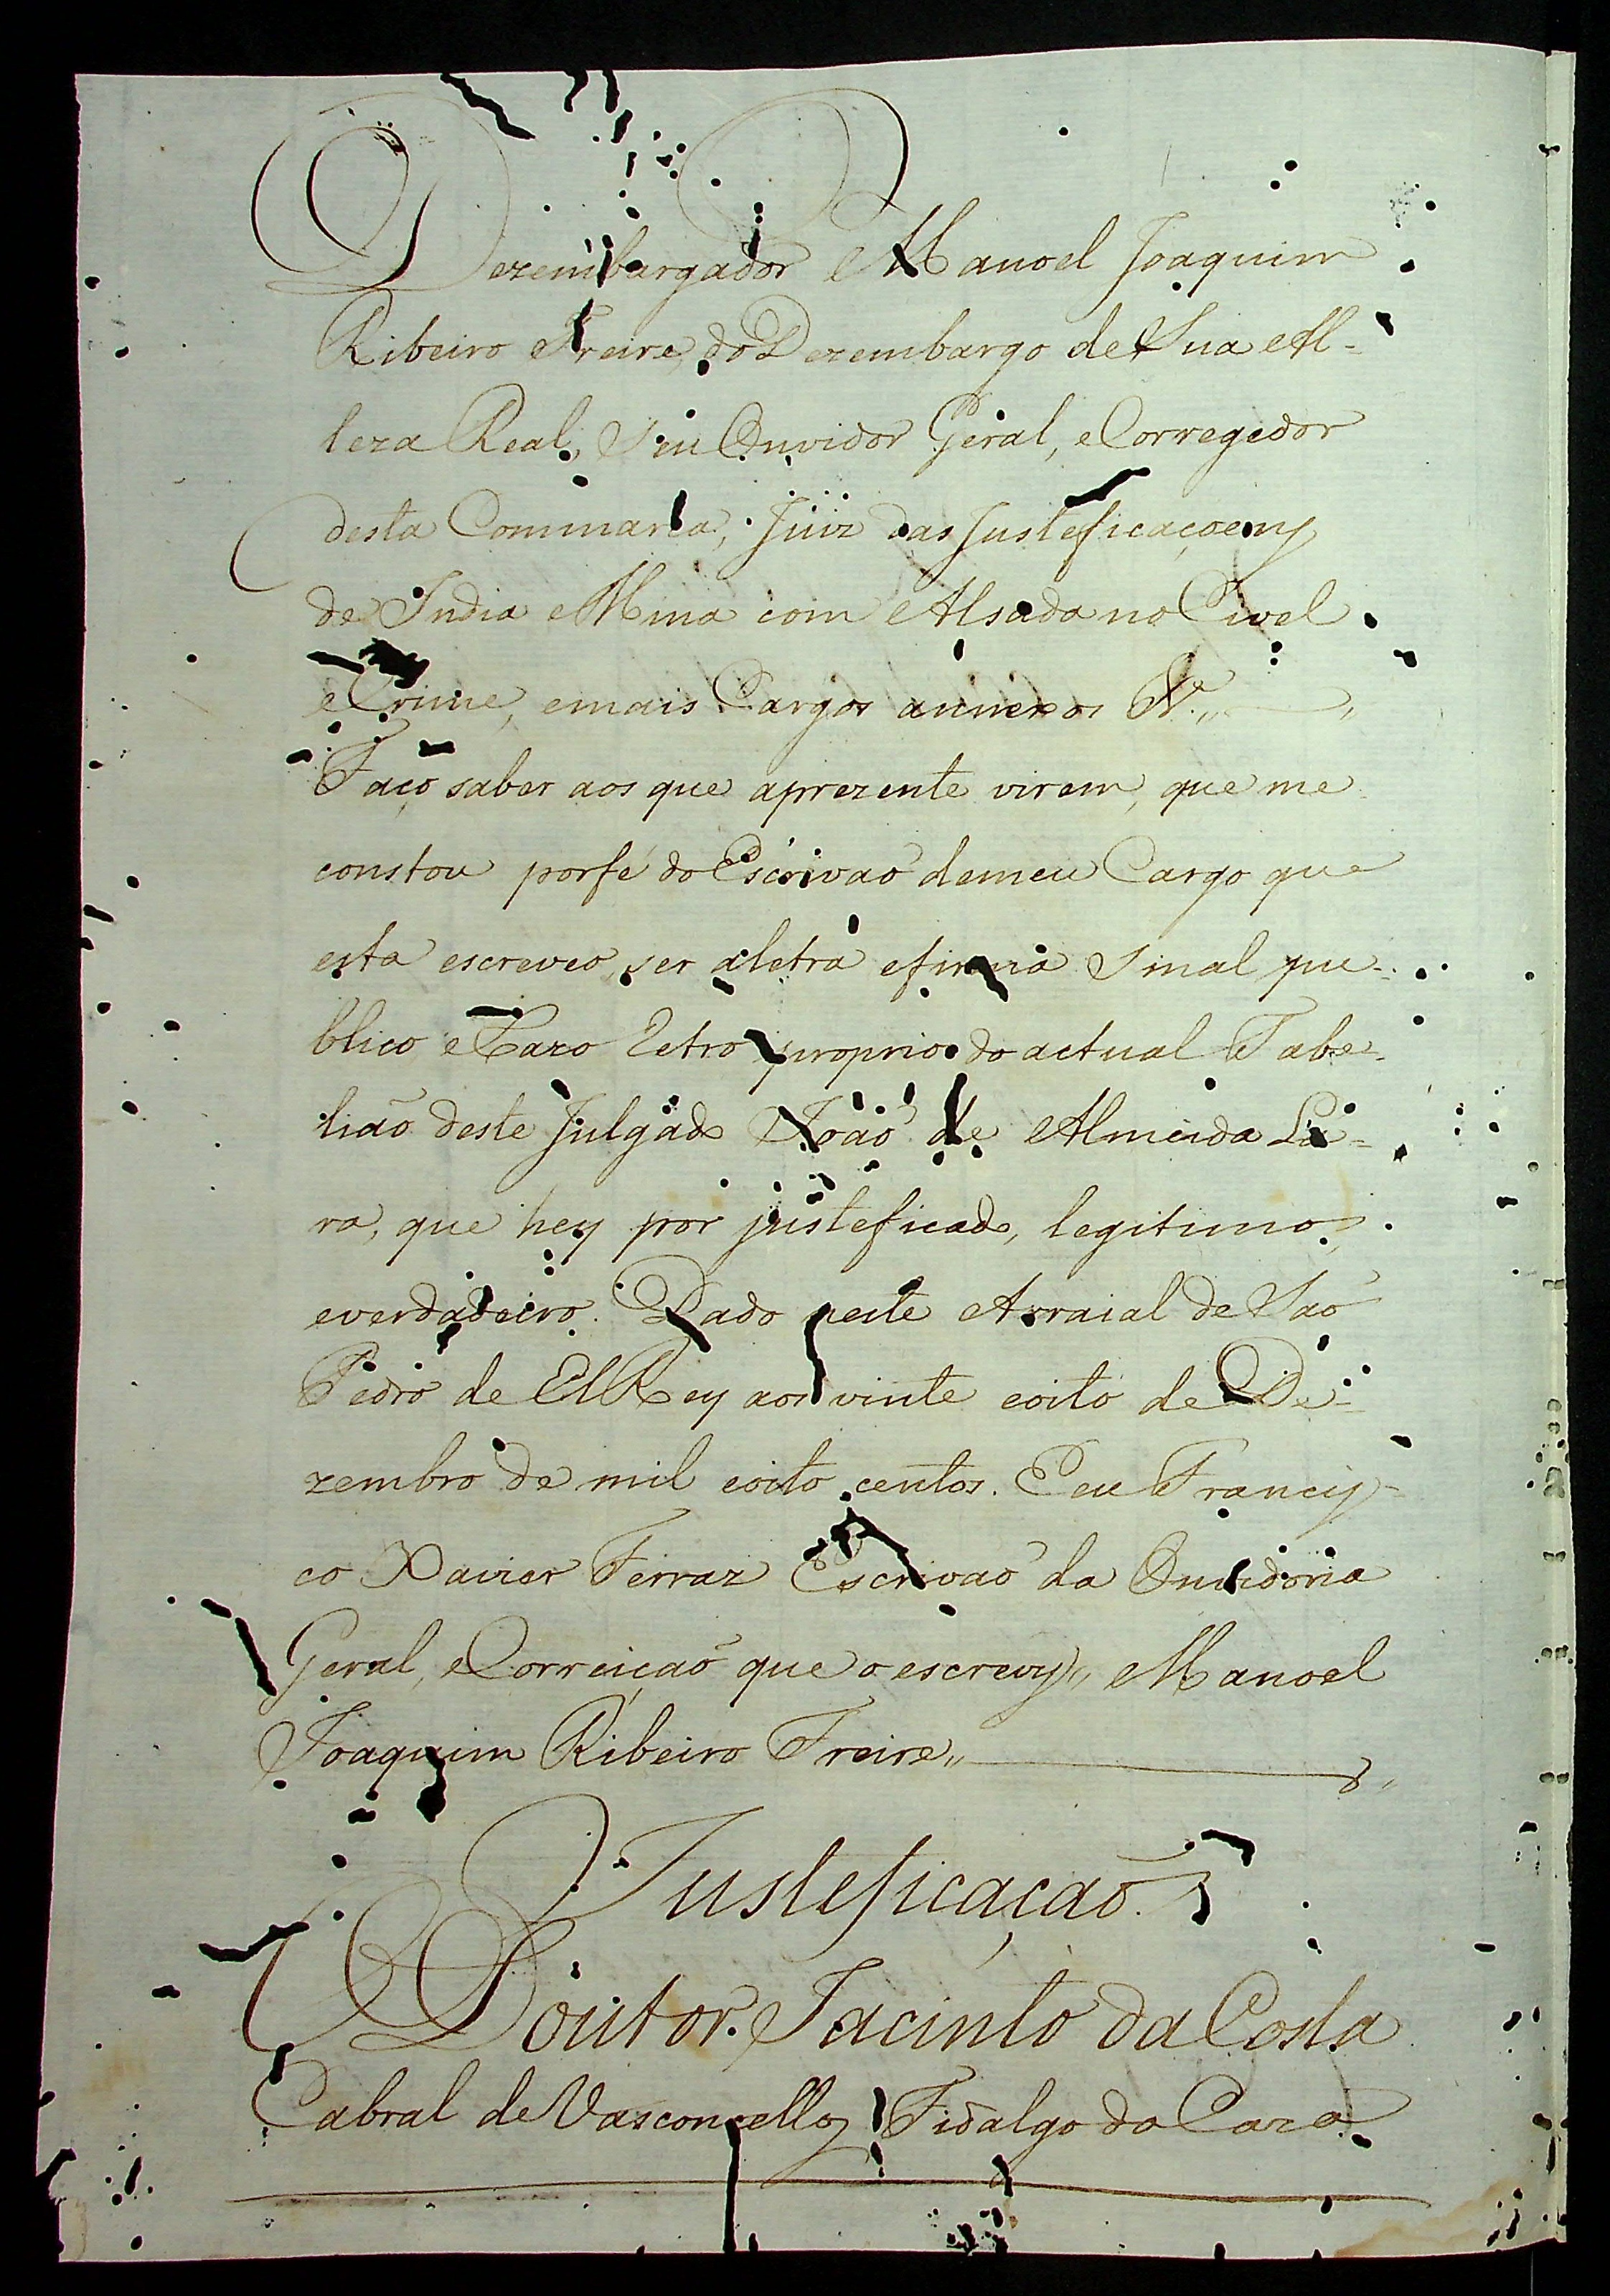 Dezembargador Manoel Joaquim
Ribeiro Freire, do Dezembargo de Sua Al-
teza Real, Seu Ouvidor Geral, e Corregedor
desta Commarca, Juiz das Justeficaçoens
de India e Mina com Alsada no Civel
e Crime, e mais Cargos annexos &ª.,,
Faço saber aos que aprezente virem, que me
constou por fé do Escrivaõ de meu Cargo que
esta escreveo, ser a letra e firma Sinal pu-
blico e Razo retro proprio do actual Tabe-
liaõ deste Julgado Joaõ de Almeida La-
ra, que hey por justeficado, legitimo,
e verdadeiro. Dado neste Arraial de Saõ
Pedro de El Rey aos vinte e oito de De-
zembro de mil e oito centos. E eu Francis-
co Xavier Ferraz Escrivaõ da Ouvidoria
Geral, e Correiçaõ que o escrevy,, Manoel
Joaquim Ribeiro Freire,,
Justeficaçaõ
Doutor Jacinto da Costa
Cabral de Vasconcellos Fidalgo da Caza